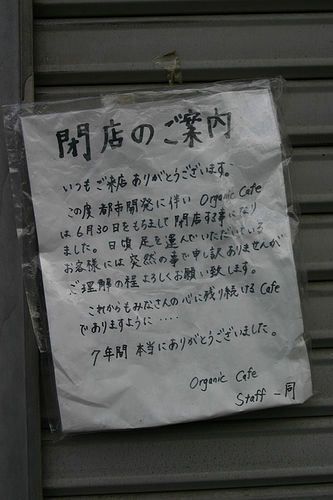 閉店のご案内
いつもご来店ありがとうございます。
この度 都市開発に伴い Organic Cafe
は6月30日をもちまして閉店する事になり
ました。日頃 足を運んでいただいている
お客様には突然の事で申し訳ありませんが
ご理解の程よろしくお願い致します。
これからもみなさんの心に残り続ける Cafe
でありますように‥‥
7年間 本当にありがとうございました。
Organic Cafe
Staff 一同